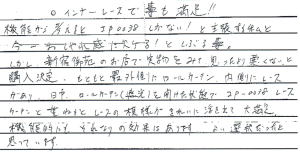 ○ インナーレースで妻も満足!!
機能から考えると SP0038 しかない! と主張する私に
今一おしゃれ感に欠ける! としぶる妻。
しかし 新宿御苑のお店で実物をみて 思ったより悪くないと
購入決定。もともと 最外側にロールカーテン、内側にレース
があり、日中、ロールカーテン(遮光)を開けた状態で SP-0038 レース
カーテンと 葉のレースの模様が きれいに浮き出て 大満足。
機能的にも それなりの効果はあります よい選択だったと
思っています。